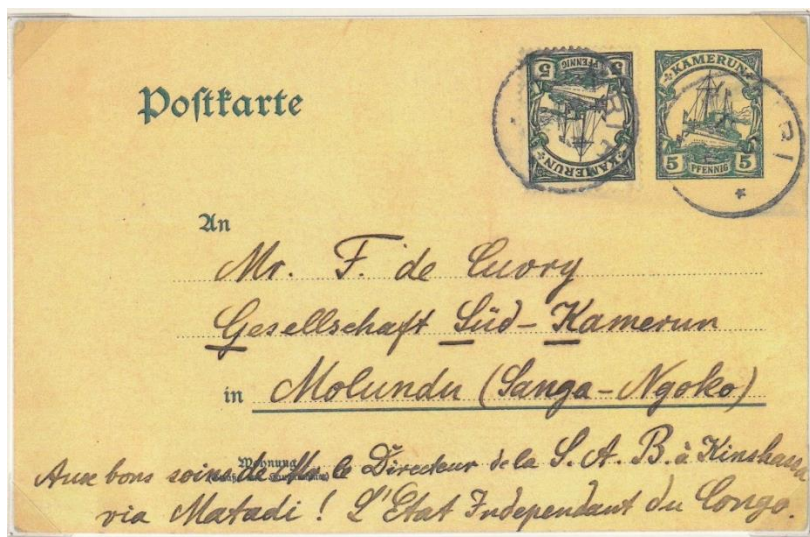 Postkarte
5 PFENNIG 5
KAMERUN
KAMERUN
5 PFENNIG 5
An
Mr. F. de Cuory
Gesellschaft Süd-Kamerun
in Molundu (Sanga-Ngoko)
Wohnung
Aux bons soins de Mr. le Directeur de la S. A. B. à Kinshasa
via Matadi ! L'Etat Independant du Congo.